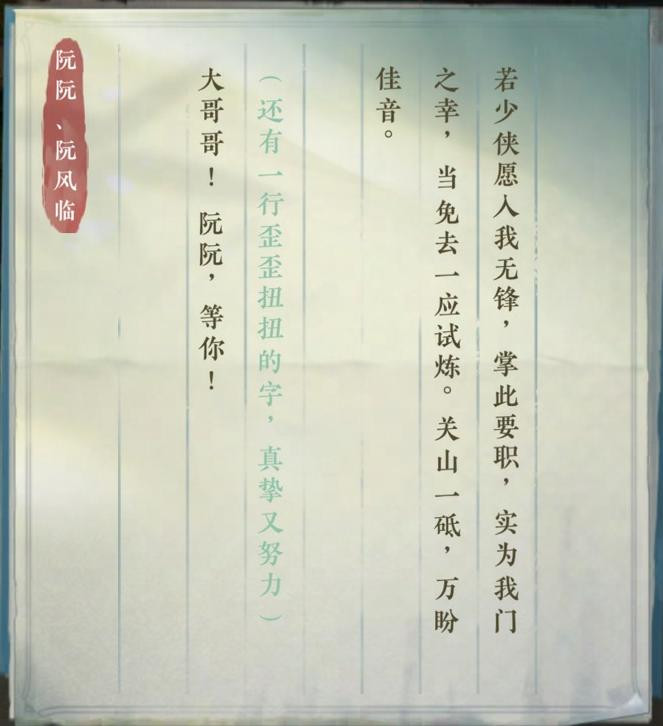 若少侠愿入我无锋，掌此要职，实为我门
之幸，当免去一应试炼。关山一砥，万盼
佳音。
（还有一行歪歪扭扭的字，真挚又努力）
大哥哥！阮阮，等你！
阮阮、阮风临